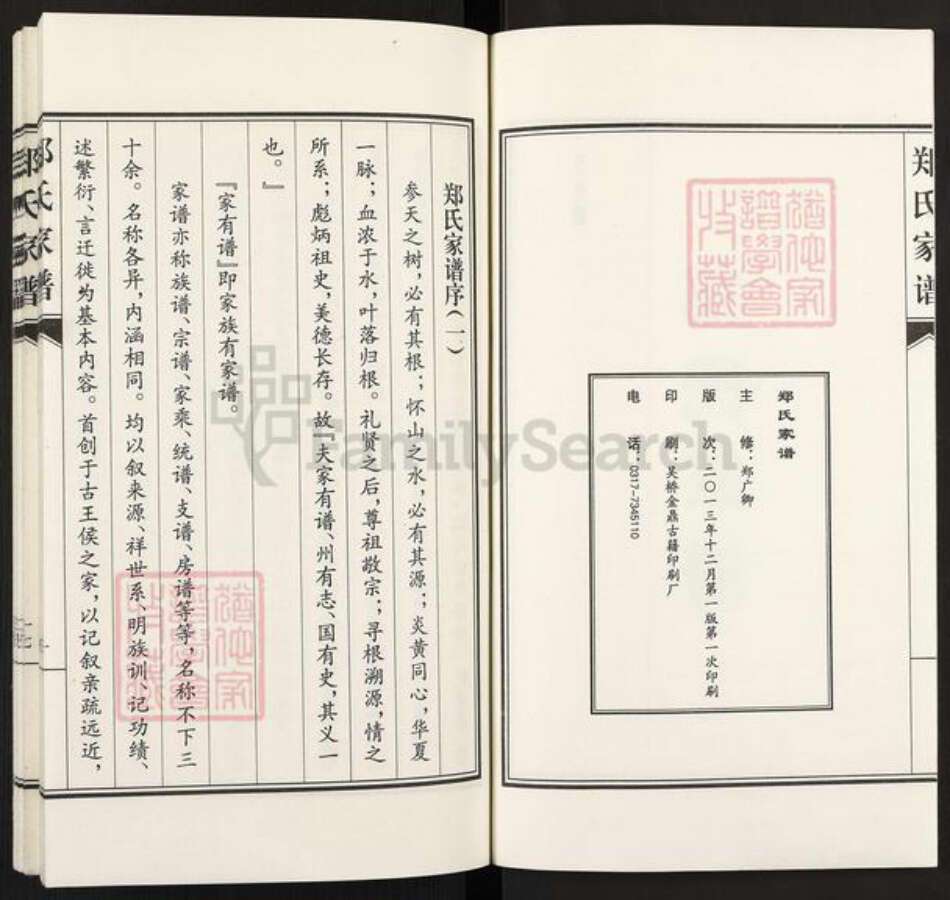 郑氏家谱
猶他家
譜學會
收藏
郑氏家谱
主　修：郑广卿
版　次：二〇一三年十二月第一版第一次印刷
印　刷：吴桥金鼎古籍印刷厂
电　话：0317-7345110
郑氏家谱序（一）
参天之树，必有其根；怀山之水，必有其源；炎黄同心，华夏
一脉；血浓于水，叶落归根。礼贤之后，尊祖敬宗；寻根溯源，情之
所系；彪炳祖史，美德长存。故“夫家有谱、州有志、国有史，其义一
也。”
“家有谱”即家族有家谱。
家谱亦称族谱、宗谱、家乘、统谱、支谱、房谱等等，名称不下三
十余。名称各异，内涵相同。均以叙来源、祥世系、明族训、记功绩、
述繁衍、言迁徙为基本内容。首创于古王侯之家，以记叙亲疏远近，
猶他家
譜學會
收藏
郑氏家谱
一
郑氏家谱
FamilySearch